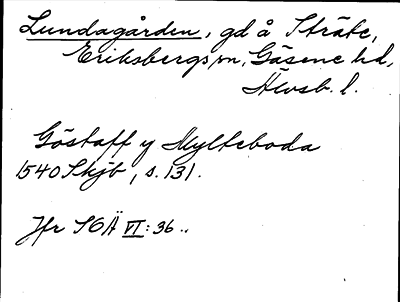 Lundagården, gd å Stråte,
Eriksbergs sn, Gäsene hd,
Älvsb. l.
Göstaff y Mylteboda
1540 Skjb, s. 131.
Jfr SOÄ VI: 36..